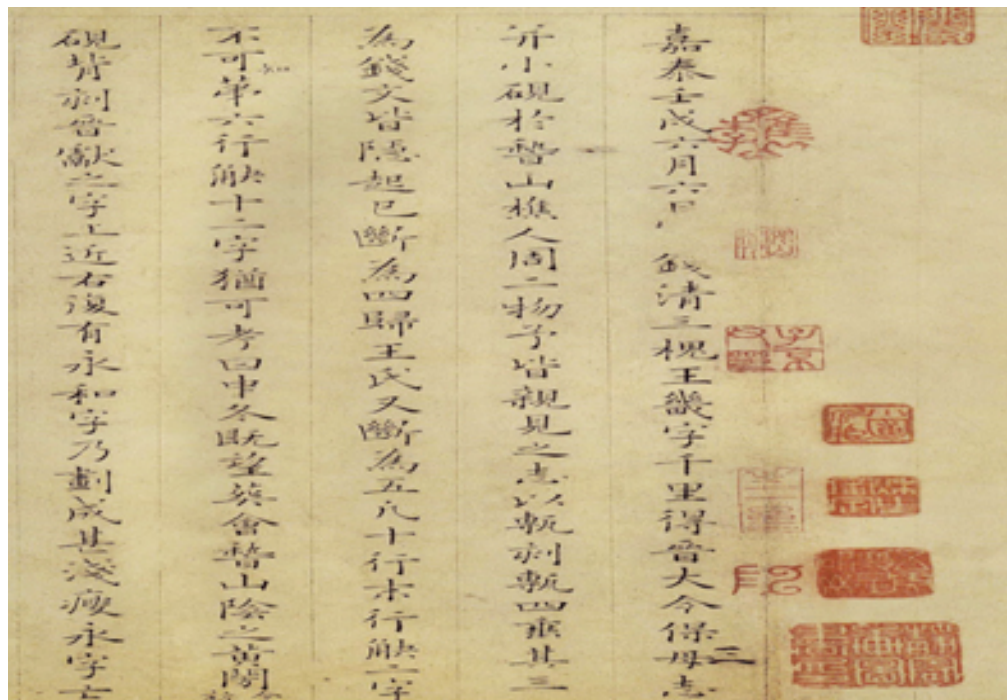 嘉泰壬戌六月六日錢清三槐王畿字千里得晉大令保母志
并小硯於稽山樵人周二物予皆親見之志以甎刻甎四垂其三
為錢文皆隱起已斷為四歸王氏又斷為五凡十行末行缺二字
不可知第六行缺十二字猶可考曰中冬既望葬會稽山陰之黄閍
硯背刻晉獻之字上近右復有永和字乃劃成甚淺瘦永字亡
三